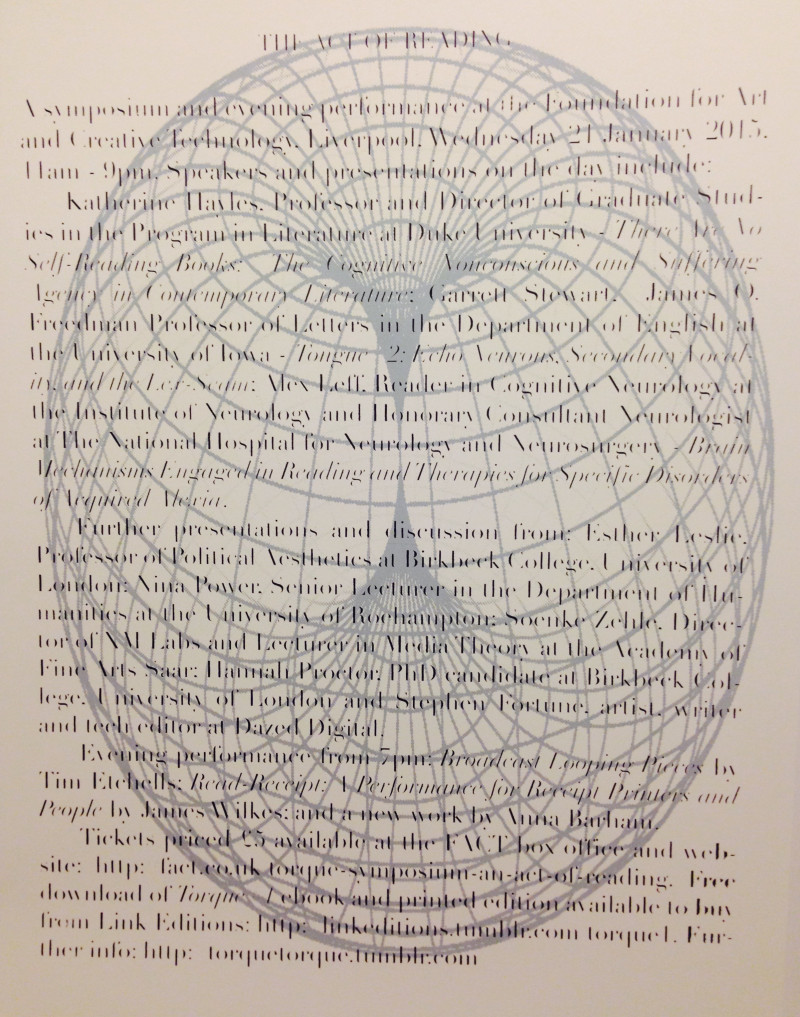 THE ACT OF READING
A symposium and evening performance at the Foundation for Art
and Creative Technology, Liverpool, Wednesday 21 January 2015,
11am - 9pm. Speakers and presentations on the day include:
Katherine Hayles, Professor and Director of Graduate Stud-
ies in the Program in Literature at Duke University - There Are No
Self-Reading Books: The Cognitive Nonconscious and Suffering
Agency in Contemporary Literature; Garrett Stewart, James O.
Freedman Professor of Letters in the Department of English at
the University of Iowa - Tongue 2: Echo Neurons, Secondary Vocal-
ity, and the Lex-Scan; Alex Leff, Reader in Cognitive Neurology at
the Institute of Neurology and Honorary Consultant Neurologist
at The National Hospital for Neurology and Neurosurgery - Brain
Mechanisms Engaged in Reading and Therapies for Specific Disorders
of Acquired Alexia.
Further presentations and discussion from: Esther Leslie,
Professor of Political Aesthetics at Birkbeck College, University of
London; Nina Power, Senior Lecturer in the Department of Hu-
manities at the University of Roehampton; Soenke Zehle, Direc-
tor of XM Labs and Lecturer in Media Theory at the Academy of
Fine Arts Saar; Hannah Proctor, PhD candidate at Birkbeck Col-
lege, University of London and Stephen Fortune, artist, writer
and tech editor at Dazed Digital.
Evening performance from 7pm: Broadcast Looping Pieces by
Tim Etchells; Read-Receipt: A Performance for Receipt Printers and
People by James Wilkes; and a new work by Anna Barham.
Tickets priced £5 available at the FACT box office and web-
site: http: fact.co.uk torque-symposium-an-act-of-reading. Free
download of Torque 1 ebook and printed edition available to buy
from Link Editions: http: linkeditions.tumblr.com torque1. Fur-
ther info: http: torquetorque.tumblr.com